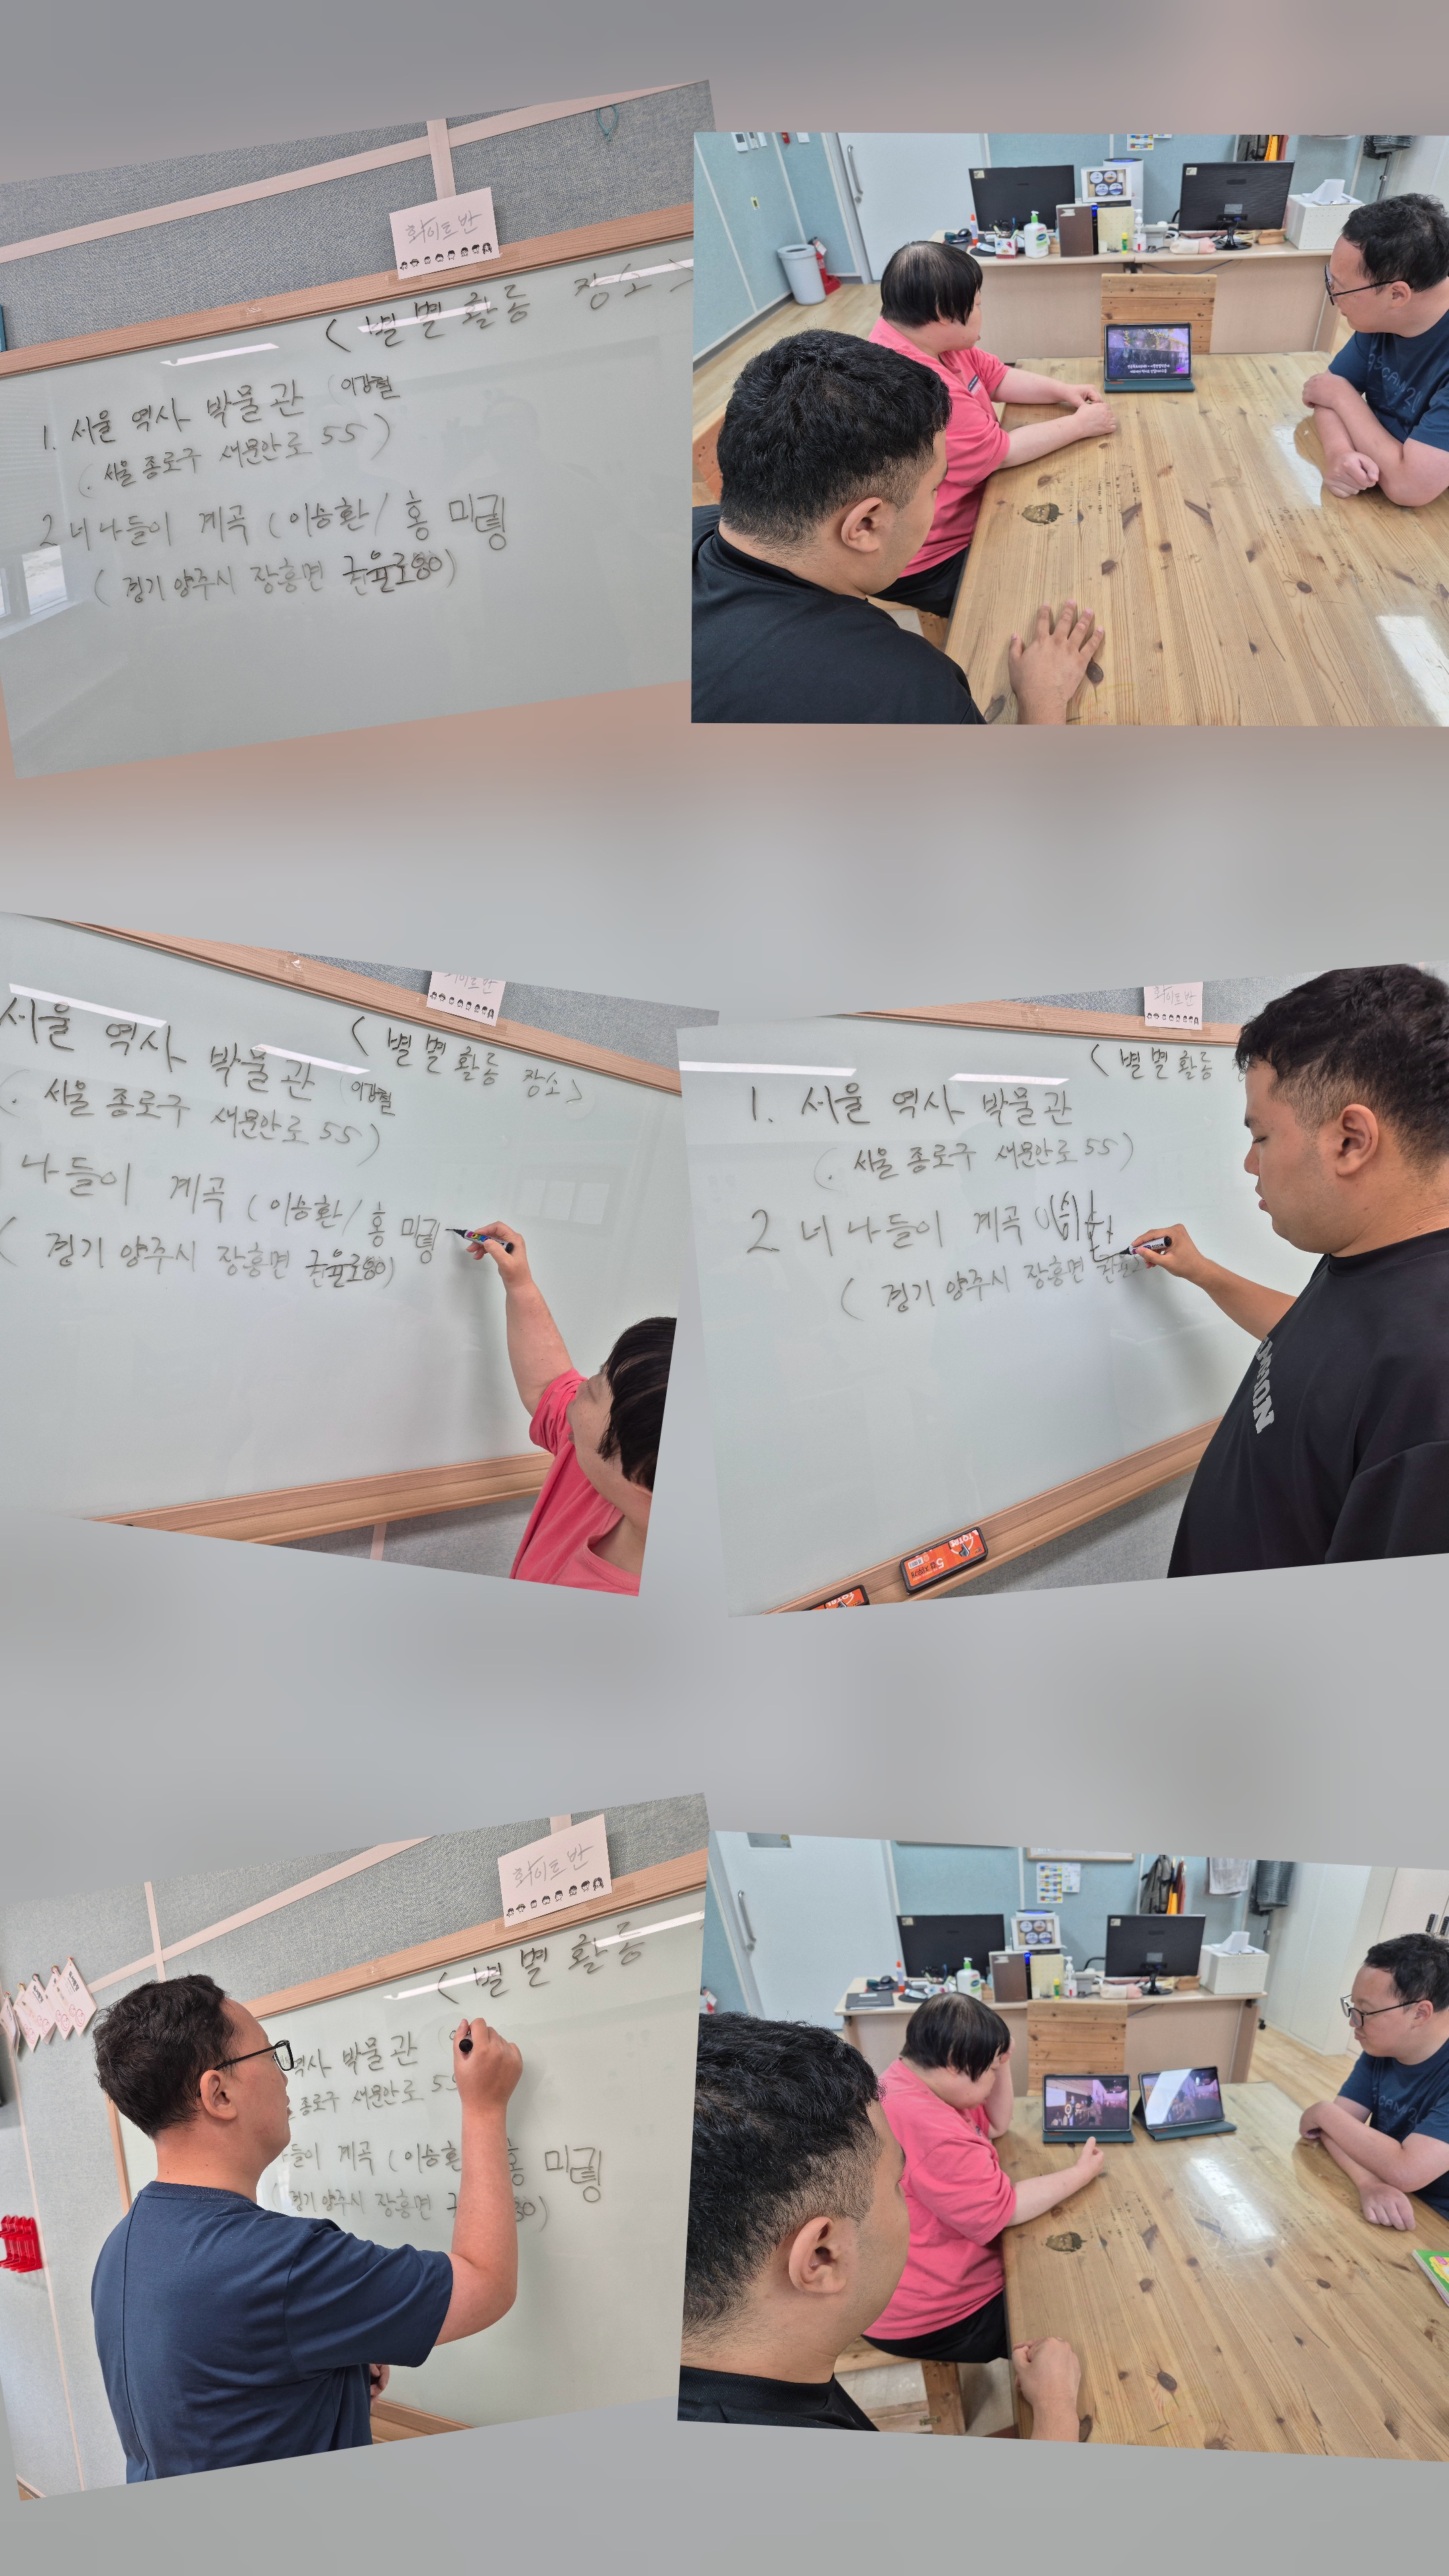 화이트반
< 별별 활동 장소 >
1. 서울 역사 박물관 (이강혁
(. 서울 종로구 새문안로 55)
2 너나들이 계곡 (이승환/ 홍 미
(경기 양주시 장흥면
화이트반
< 별별 활동 장소>
서울 역사 박물관 (이강혁
(. 서울 종로구 새문안로 55)
나들이 계곡 (이승환/ 홍 미
( 경기 양주시 장흥면
화이트반
< 별별 활동
1. 서울 역사 박물관
(. 서울 종로구 새문안로 55)
2 너나들이 계곡
( 경기 양주시 장흥면
화이트반
< 별별 활동
역사 박물관
종로구 새문안로 55
들이 계곡 (이승환 홍 미
경기 양주시 장흥면